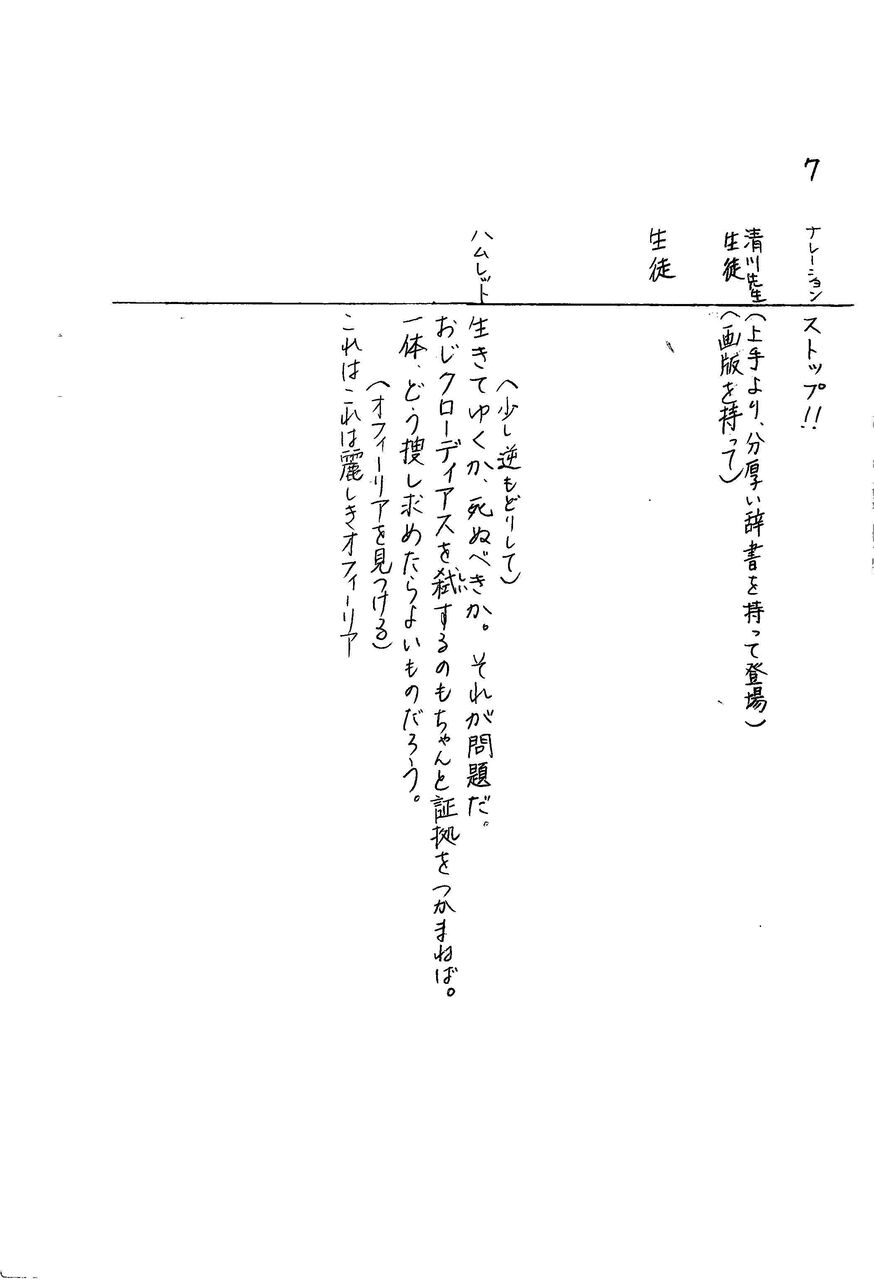 7
ナレーション ストップ!!
清川先生 (上手より、分厚い辞書を持って登場)
生徒 (画版を持って)
生徒
(少し逆もどりして)
ハムレット 生きてゆくか、死ぬべきか。それが問題だ。
おじクローディアスを弑するのもちゃんと証拠をつかまねば。
一体、どう捜し求めたらよいものだろう。
(オフィーリアを見つける)
これはこれは麗しきオフィーリア